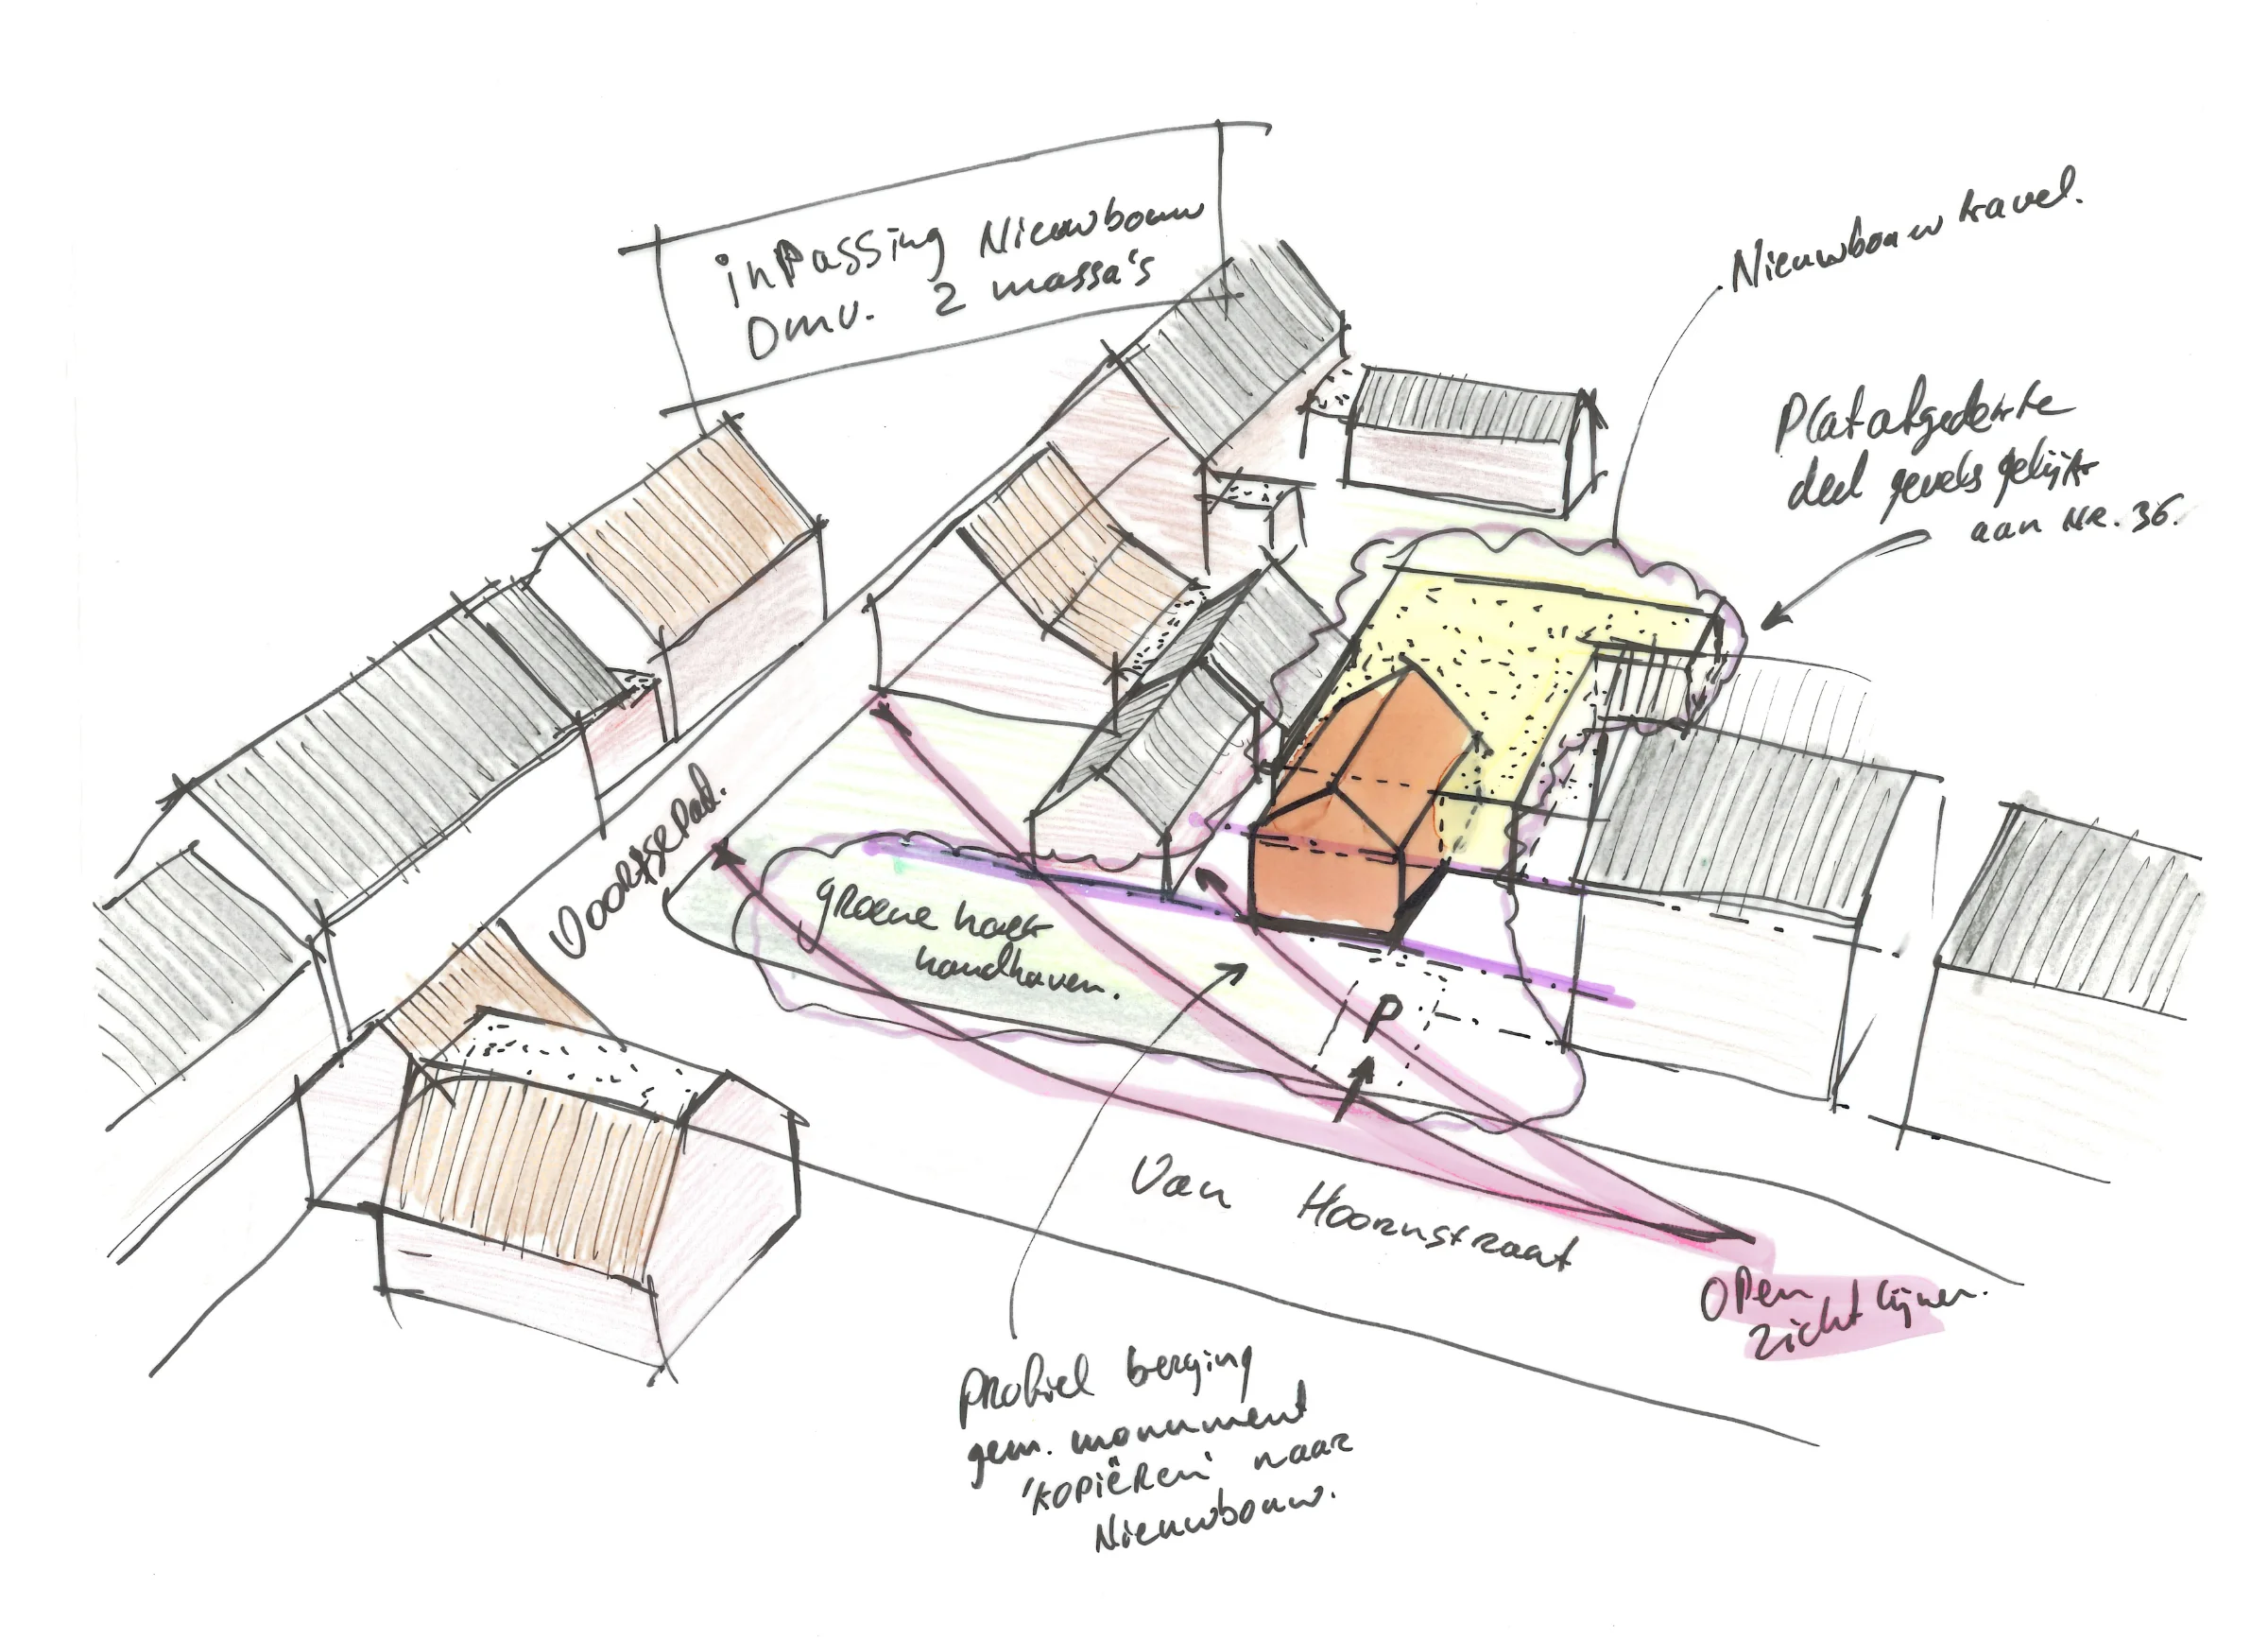 inpassing Nieuwbouw
Dmv. 2 massa's
Nieuwbouw kavel.
Plat afgedekte
deel gevels gelijk
aan NR. 36.
Voortse Pad.
groene hoek
handhaven.
P
Van Hoornstraat
Open
zichtlijnen.
Profiel berging
gem. monument
'kopiëren' naar
Nieuwbouw.